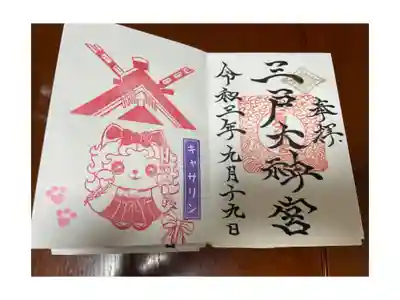 参拝
三戸大神宮
令和二年九月十九日
キャサリン